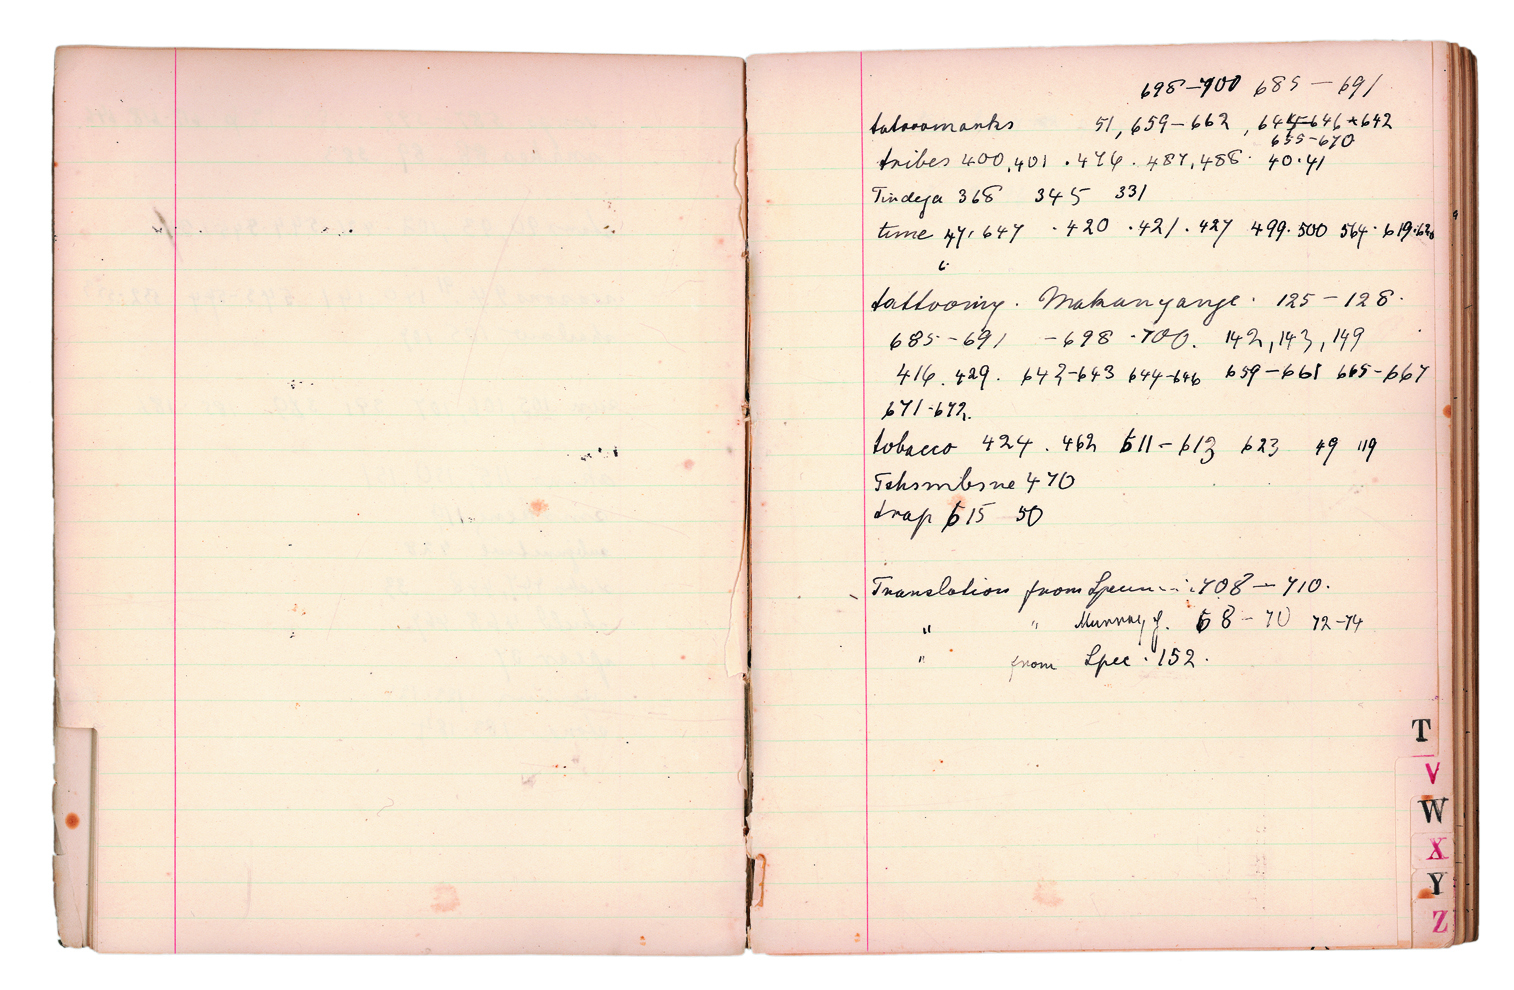 698-700 685-691
tatoomarks 51, 659-662, 644-646 + 642
655-670
tribes 400, 401 . 476 . 487, 488 . 40.41
Tindega 368 345 331
time 47, 647 . 420 . 421 . 427 499.500 564. 619.620
tattooing . Makanyange . 125-128.
685-691 -698 .700. 142, 143, 149
416. 429. 642-643 644-646 659-661 665-667
671-672.
tobacco 424 . 462 611-613 623 49 119
470
trap 615 50
Translation from 708-710.
" " Murray J. 68-70 72-74
" from Spec. 152.
T
V
W
X
Y
Z